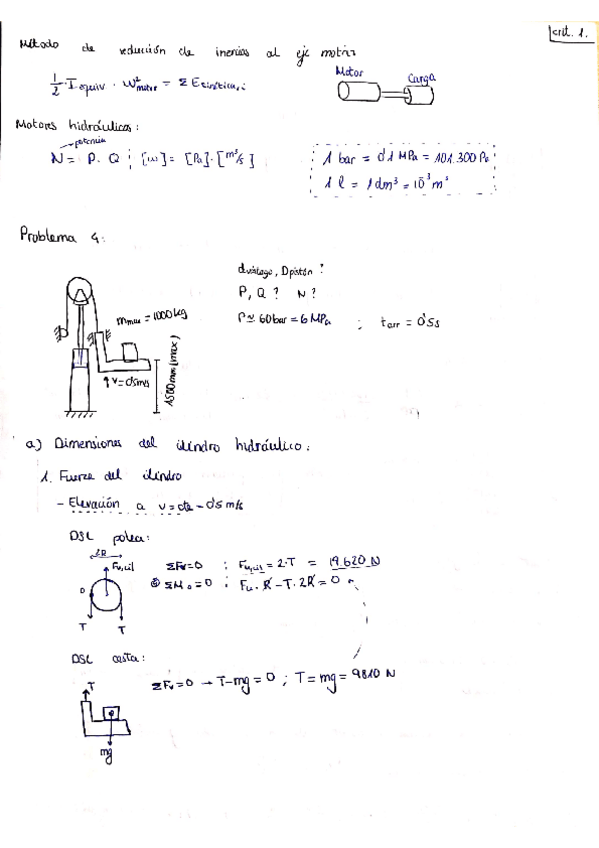 Crit. 1.
Método de reducción de inercias al eje motriz
1/2 · I equiv · ω²motor = Σ Ecinéticas,i
Motor Carga
Motores hidráulicos:
potencia
N = P. Q ; [w] = [Pa]·[m³/s]
1 bar = 0'1 MPa = 101.300 Pa
1 l = 1 dm³ = 10⁻³ m³
Problema 4:
dvástago, Dpistón ?
P, Q ? N ?
P ≃ 60 bar = 6 MPa ; tarr = 0'5 s
mmax = 1000 kg
v = 0'5 m/s
1500 mm (max)
a) Dimensiones del cilindro hidráulico:
1. Fuerza del cilindro
- Elevación a v = cte = 0'5 m/s
DSL polea:
2R
Fu,cil
O
T T
ΣFv = 0 ; Fu,cil = 2·T = 19.620 N
ΣMo = 0 ; Fu · R - T · 2R = 0
DSL cesta:
T
mg
ΣFv = 0 → T - mg = 0 ; T = mg = 9810 N